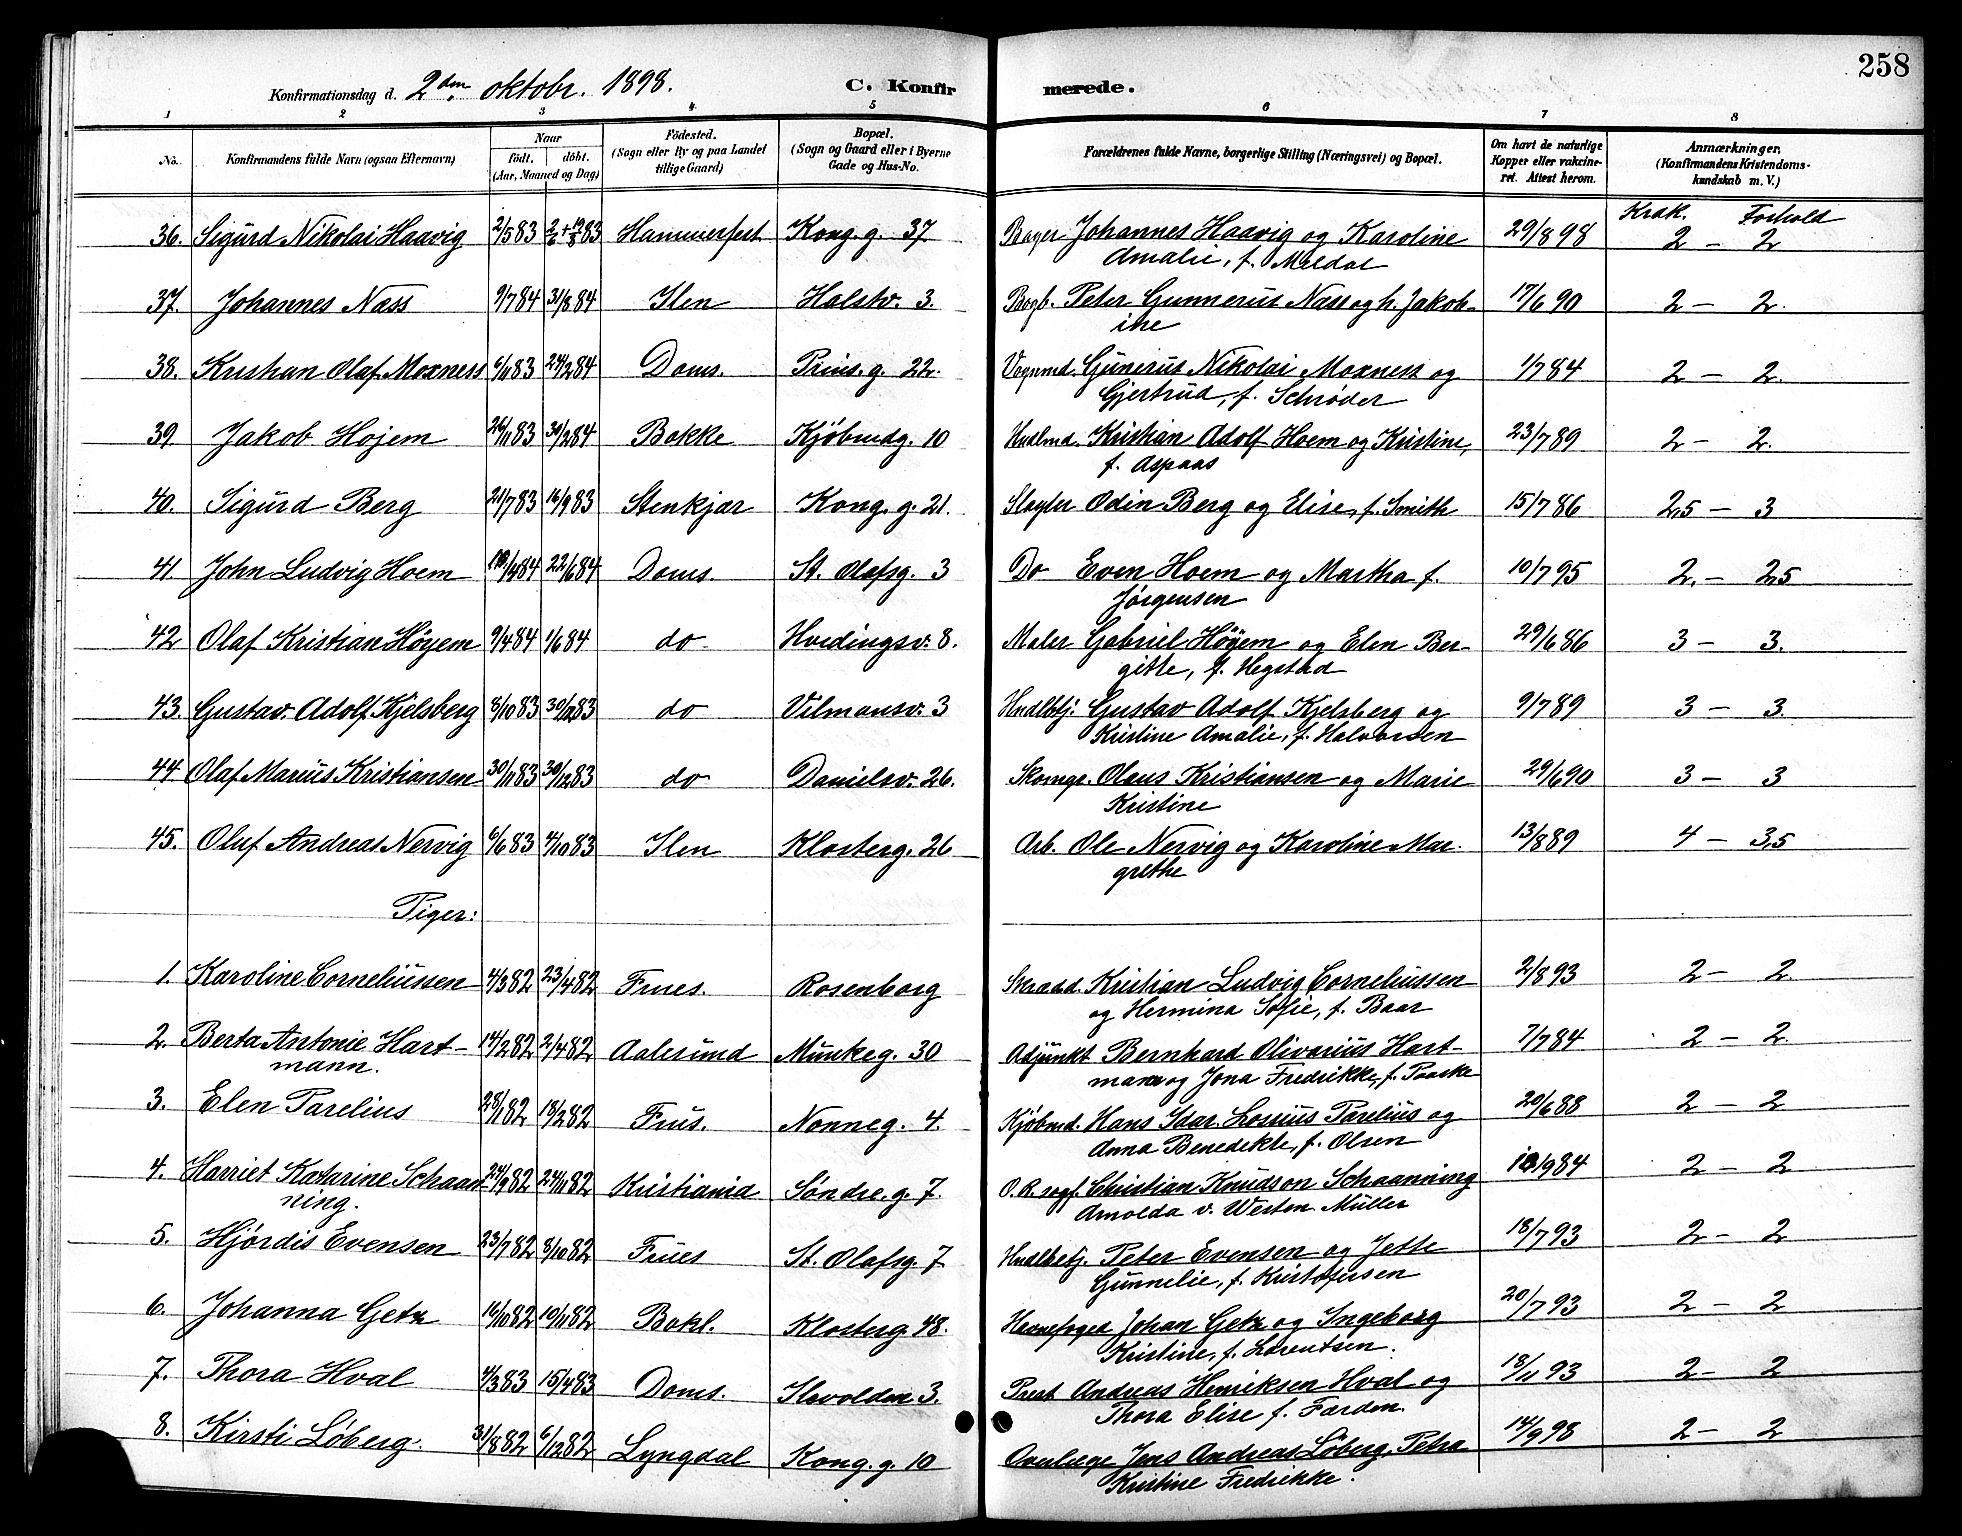 258
Konfirmationsdag d. 2den oktobr. 1898. C. Konfirmerede.
1 2 3 4 5 6 7 8
No. Konfirmandens fulde Navn (ogsaa Efternavn) Naar født. døbt. (Aar, Maaned og Dag) Fødested. (Sogn eller By og paa Landet tillige Gaard) Bopæl. (Sogn og Gaard eller i Byerne Gade og Hus-No. Forældrenes fulde Navne, borgerlige Stilling (Næringsvei) og Bopæl. Om havt de naturlige Kopper eller vakcineret. Attest herom. Anmærkninger. (Konfirmandens Kristendomskundskab m. V.)
Krdk. Forhold
36. Sigurd Nikolai Haavig 2/5 83 83 Hammerfest Kong. g. 37 Bager Johannes Haavig og Karoline 29/8 98 2 – 2
Amalie, f. Meldal
37. Johannes Næss 9/7 84 31/8 84 Ilen Halstv. 3. Bogb. Peter Gunnerus Næss og h. Jakob- 17/6 90 2 – 2.
ine
38. Kristian Olaf Moxness 6/11 83 24/2 84 Doms. Prins. g. 22. Vognmd. Gunerus Nikolai Moxness og 1/7 84 2 – 2.
Gjertrud, f. Schrøder
39. Jakob Hojem 26/11 83 30/2 84 Bakke Kjøbmdg. 10 Hndlmd. Kristian Adolf Hoem og Kristine, 23/7 89 2 – 2.
f. Aspaas
40. Sigurd Berg 21/7 83 16/9 83 Stenkjær Kong. g. 21. Slagter Odin Berg og Elise, f. Smith 15/7 86 2,5 – 3
41. John Ludvig Hoem 84 22/6 84 Doms. St. Olafsg. 3 Do Even Hoem og Martha f. 10/7 95 2. – 2,5
Jørgensen
42 Olaf Kristian Høyem 9/4 84 1/6 84 do Hvedingsv. 8. Maler Gabriel Høyem og Elen Ber- 29/6 86 3 – 3.
gitte, f. Hegstad
43. Gustav. Adolf Kjelsberg 8/10 83 30/12 83 do Vilmansv. 3 Hndlbtj. Gustav Adolf Kjelsberg og 9/7 89 3 – 3.
Kristine Amalie, f. Halvorsen
44. Olaf Marius Kristiansen 30/11 83 30/12 83 do Danielsv. 26. Skomge. Olaus Kristiansen og Marie 29/6 90 3 – 3
Kristine
45. Oluf Andreas Nervig 6/6 83 4/10 83 Ilen Klosterg. 26 Arb. Ole Nervig og Karoline Mar- 13/8 89 4 – 3,5
grethe
Piger:
1. Karoline Corneliussen 4/3 82 23/4 82 Frues. Rosenborg Kristian Ludvig Corneliussen 2/8 93 2 – 2.
og Hermina Sofie, f. Baar
2. Berta Antonie Hart- 14/2 82 2/4 82 Aalesund Munkeg. 30 Adjunkt Bernhard Olivarius Hart- 7/7 84 2 – 2.
mann. mann og Jona Fredrikke, f. Paaske
3. Elen Parelius 28/1 82 18/2 82 Frus. Nonneg. 4. Kjøbmd. Hans Isac. Lossius Parelius og 20/6 88 2 – 2
Anna Benedikte, f. Olsen
4. Harriet Katarine Schaan- 24/9 82 24/11 82 Kristiania Søndre. g. 7. O. R. sagf. Christian Knudson Schaanning 84 2 – 2
ning. Arnolda v. Westen Müller
5. Hjørdis Evensen 23/7 82 8/10 82 Frues St. Olafsg. 7 Hndlbetj. Peter Evensen og Jette 18/7 93 2 – 2
Gunnelie, f. Kristofersen
6. Johanna Getz 16/10 82 19/11 82 Bakl. Klosterg. 48. Havnefoged Johan Getz og Ingeborg 20/7 93 2 – 2
Kristine, f. Lorentsen.
7. Thora Hval 4/3 83 15/4 83 Doms. Ilevolden 3. Prest Andreas Henriksen Hval og 18/11 93 2 – 2
Thora Elise f. Færden.
8. Kirsti Løberg. 31/8 82 6/12 82 Lyngdal Kong. g. 10 Overlæge Jens Andreas Løberg, Petra 14/9 98 2 – 2
Kristine Fredrikke.